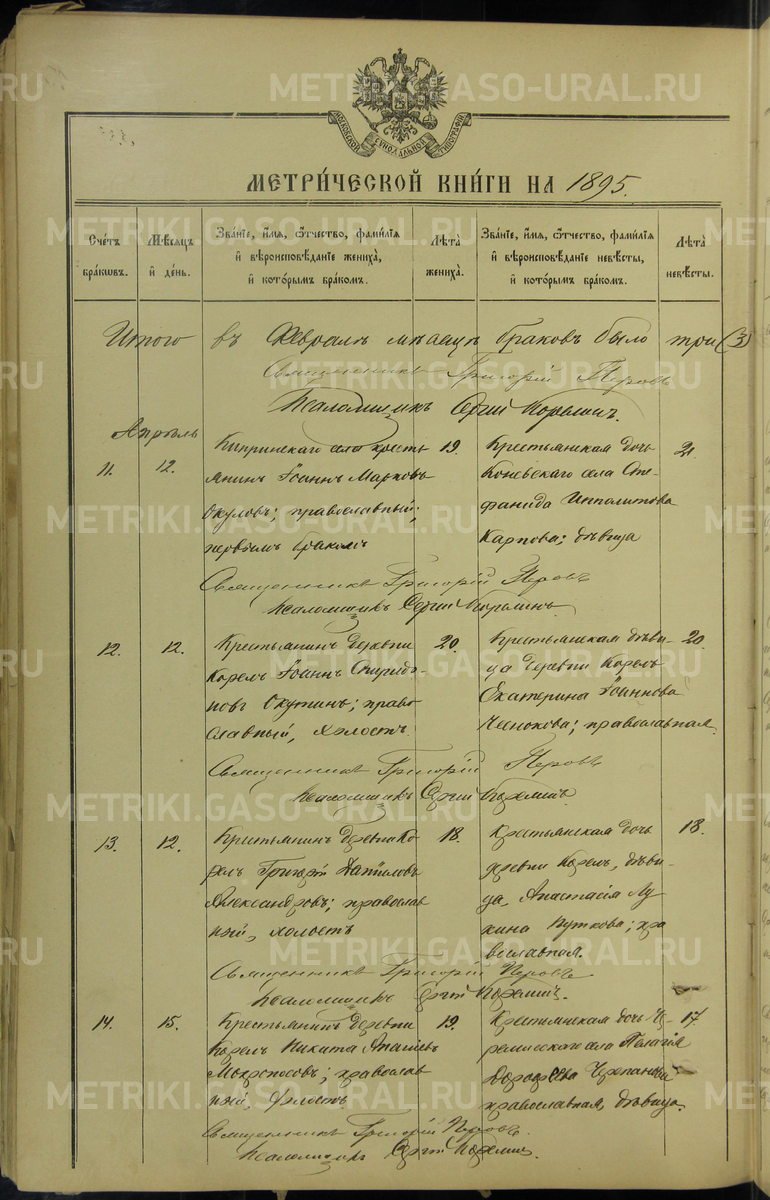 МОСКОВСКОЙ СѴНОДАЛЬНОЙ ТИПОГРАФІИ
МЕТРИ́ЧЕСКОЙ КНИ́ГИ НА 1895.
Сче́тъ бра́ковъ.
Мѣ́сяцъ и҆ де́нь.
Зва́нїе, и҆́мя, ѻ҆́тчество, фами́лїя и҆ вѣроисповѣ́данїе жениха̀, и҆ кото́рымъ бра́комъ.
Лѣ́та жениха̀.
Зва́нїе, и҆́мя, ѻ҆́тчество, фами́лїя и҆ вѣроисповѣ́данїе невѣ́сты, и҆ кото́рымъ бра́комъ.
Лѣ́та невѣ́сты.
Итого въ Февралѣ мѣсяцѣ браковъ было три (3)
Священникъ Григорій Перовъ
Псаломщикъ Сергій
Апрѣль
11. 12.
Кипринскаго села кресть
янинъ Іоаннъ Марковъ
Окуловъ; православный;
первымъ бракомъ
19.
Крестьянская дочь
Коневскаго села Сте
фанида Ипполитова
Карпова; дѣвица
21
Священникъ Григорій Перовъ
Псаломщикъ Сергій
12. 12.
Крестьянинъ деревни
Корелъ Іоаннъ Спиридо-
новъ Окутинъ; право
славный, холостъ
20.
Крестьянская дѣви-
ца деревни Корелъ
Екатерина Іоаннова
Чеснокова; православная.
20.
Священникъ Григорій Перовъ
Псаломщикъ Сергій
13. 12.
Крестьянинъ деревни Ко-
релъ Григорій Даніиловъ
Александровъ; православ
ный, холостъ
18.
Крестьянская дочь
деревни Корелъ, дѣви-
ца, Анастасія Лу
кина Путкова; пра
вославная.
18.
Священникъ Григорій Перовъ
Псаломщикъ Сергій
14. 15.
Крестьянинъ деревни
Корелъ Никита
Мокроносовъ; православ
ный, холостъ
19.
Крестьянская дочь Че-
ремисскаго села Пелагія
Дорофеева
православная, дѣвица.
17
Священникъ Григорій Перовъ
Псаломщикъ Сергій
METRIKI.GASO-URAL.RU